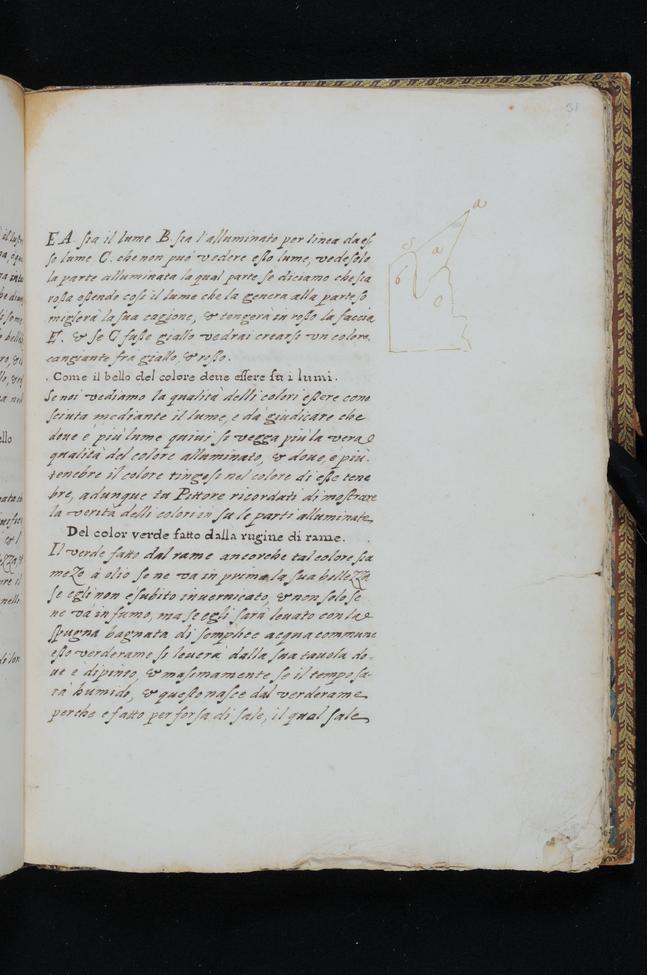 31
a
E A. sia il lume B. sia l'alluminato per linea da es
so lume C. che non puo vedere esso lume, vede solo
la parte alluminata la qual parte se diciamo che sia
rossa essendo cosi il lume che la genera alla parte so
miglierà la sua cagione, & tengerà in rosso la faccia
E. & se C fusse giallo vedrai crearsi un colore
cangiante fra giallo, & rosso.
a
b
c
. Come il bello del colore deue essere su i lumi.
Se noi vediamo la qualità delli colori essere cono
sciuta mediante il lume, e da giudicare che
doue è più lume quiui si vegga più la vera
qualità del colore alluminato, & doue, e più
tenebre il colore tingesi nel colore di esse tene
bre, adunque tu Pittore ricordati di mostrare
la verità delli colori in su le parti alluminate
Del color verde fatto dalla rugine di rame.
Il verde fatto dal rame ancorche tal colore sia
meZe à olio se ne va in prima la sua belleZZa
se egli non e subito invernicato, & non solo se
ne và in fumo, ma se egli sarà leuato con la
spugna bagnata di semplice acqua commune
esso verderame si leuerà dalla sua tauola do-
ue e dipinto, & masimamente se il tempo sa-
rà humido, & questo nasce dal verderame
perche e fatto per forsa di sale, il qual sale